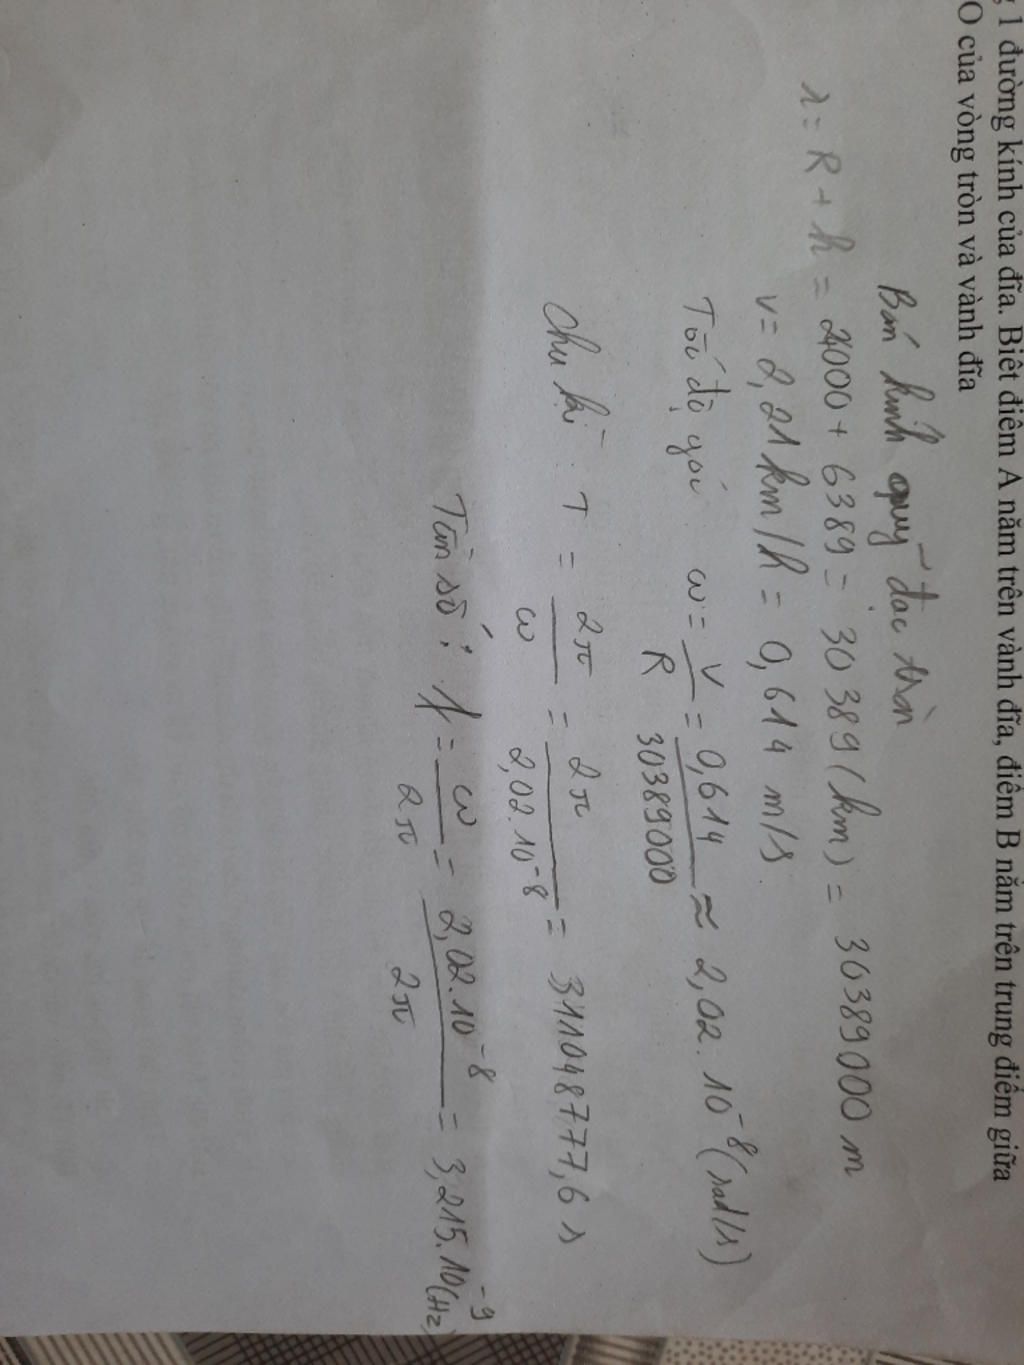 1 đường kính của đĩa. Biết điểm A nằm trên vành đĩa, điểm B nằm trên trung điểm giữa
O của vòng tròn và vành đĩa
Bán kính quỹ đạo tròn
r = R + h = 24000 + 6389 = 30389 (km) = 30389000 m
v = 2,21 km/h = 0,614 m/s
Tốc độ góc ω = v/R = 0,614/30389000 ≈ 2,02.10⁻⁸ (rad/s)
Chu kì T = 2π/ω = 2π/2,02.10⁻⁸ = 311048777,6 s
Tần số: f = ω/2π = 2,02.10⁻⁸/2π = 3,215.10⁻⁹ (Hz)